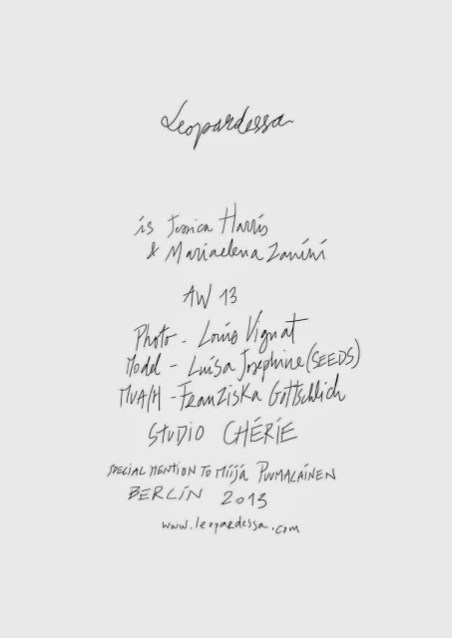 Leopardessa
is Jessica Harris
& Mariaelena Zanini
AW 13
Photo - Louis Vignat
Model - Luisa Josephine (SEEDS)
MUA/H - Franziska Gottschlich
STUDIO CHÉRIE
SPECIAL MENTION TO Miija PUUMALAINEN
BERLIN 2013
www.leopardessa.com